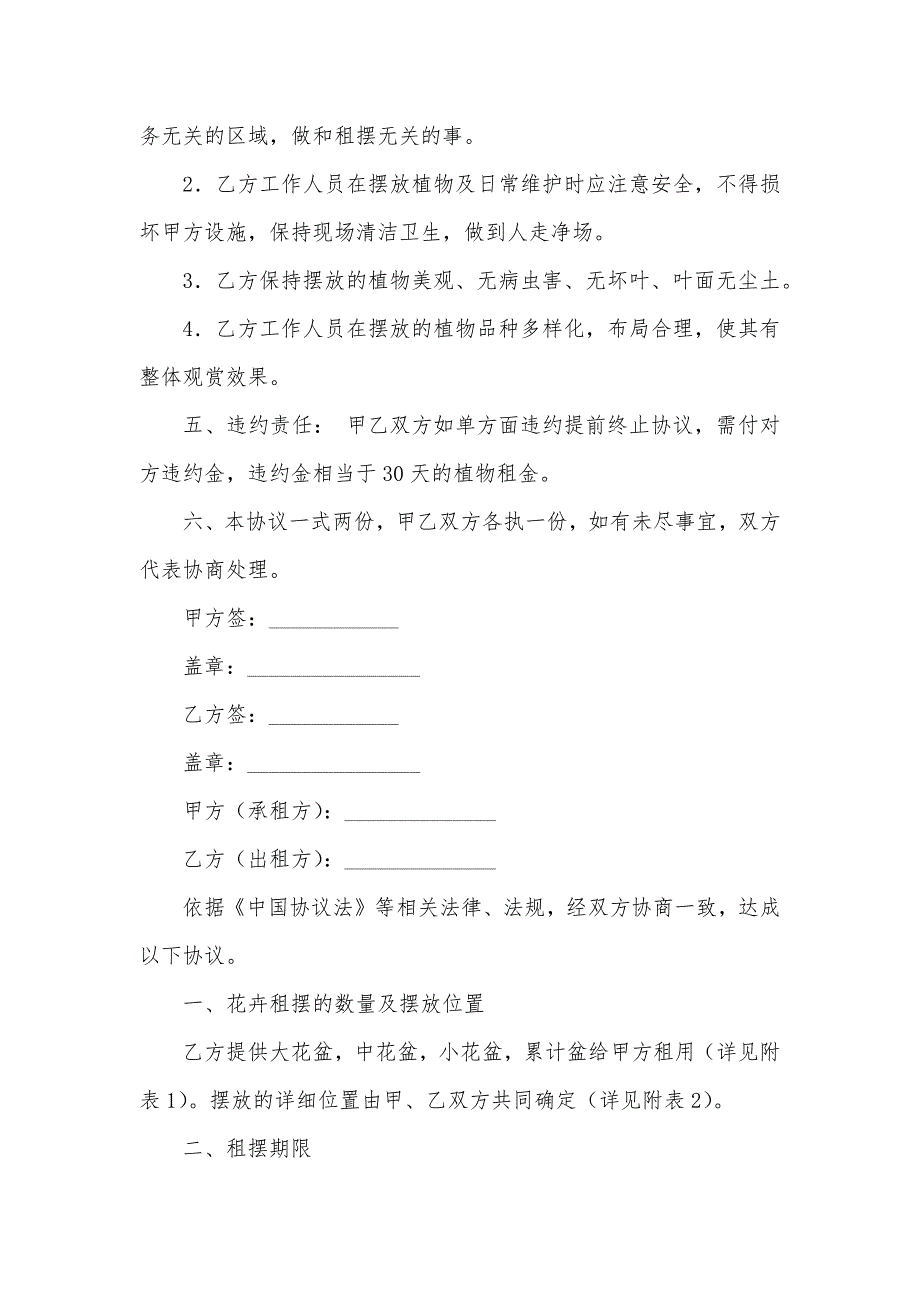 务无关的区域，做和租摆无关的事。
2．乙方工作人员在摆放植物及日常维护时应注意安全，不得损
坏甲方设施，保持现场清洁卫生，做到人走净场。
3．乙方保持摆放的植物美观、无病虫害、无坏叶、叶面无尘土。
4．乙方工作人员在摆放的植物品种多样化，布局合理，使其有
整体观赏效果。
五、违约责任： 甲乙双方如单方面违约提前终止协议，需付对
方违约金，违约金相当于 30 天的植物租金。
六、本协议一式两份，甲乙双方各执一份，如有未尽事宜，双方
代表协商处理。
甲方签：____________
盖章：________________
乙方签：____________
盖章：________________
甲方（承租方）：______________
乙方（出租方）：______________
依据《中国协议法》等相关法律、法规，经双方协商一致，达成
以下协议。
一、花卉租摆的数量及摆放位置
乙方提供大花盆，中花盆，小花盆，累计盆给甲方租用（详见附
表 1）。摆放的详细位置由甲、乙双方共同确定（详见附表 2）。
二、租摆期限